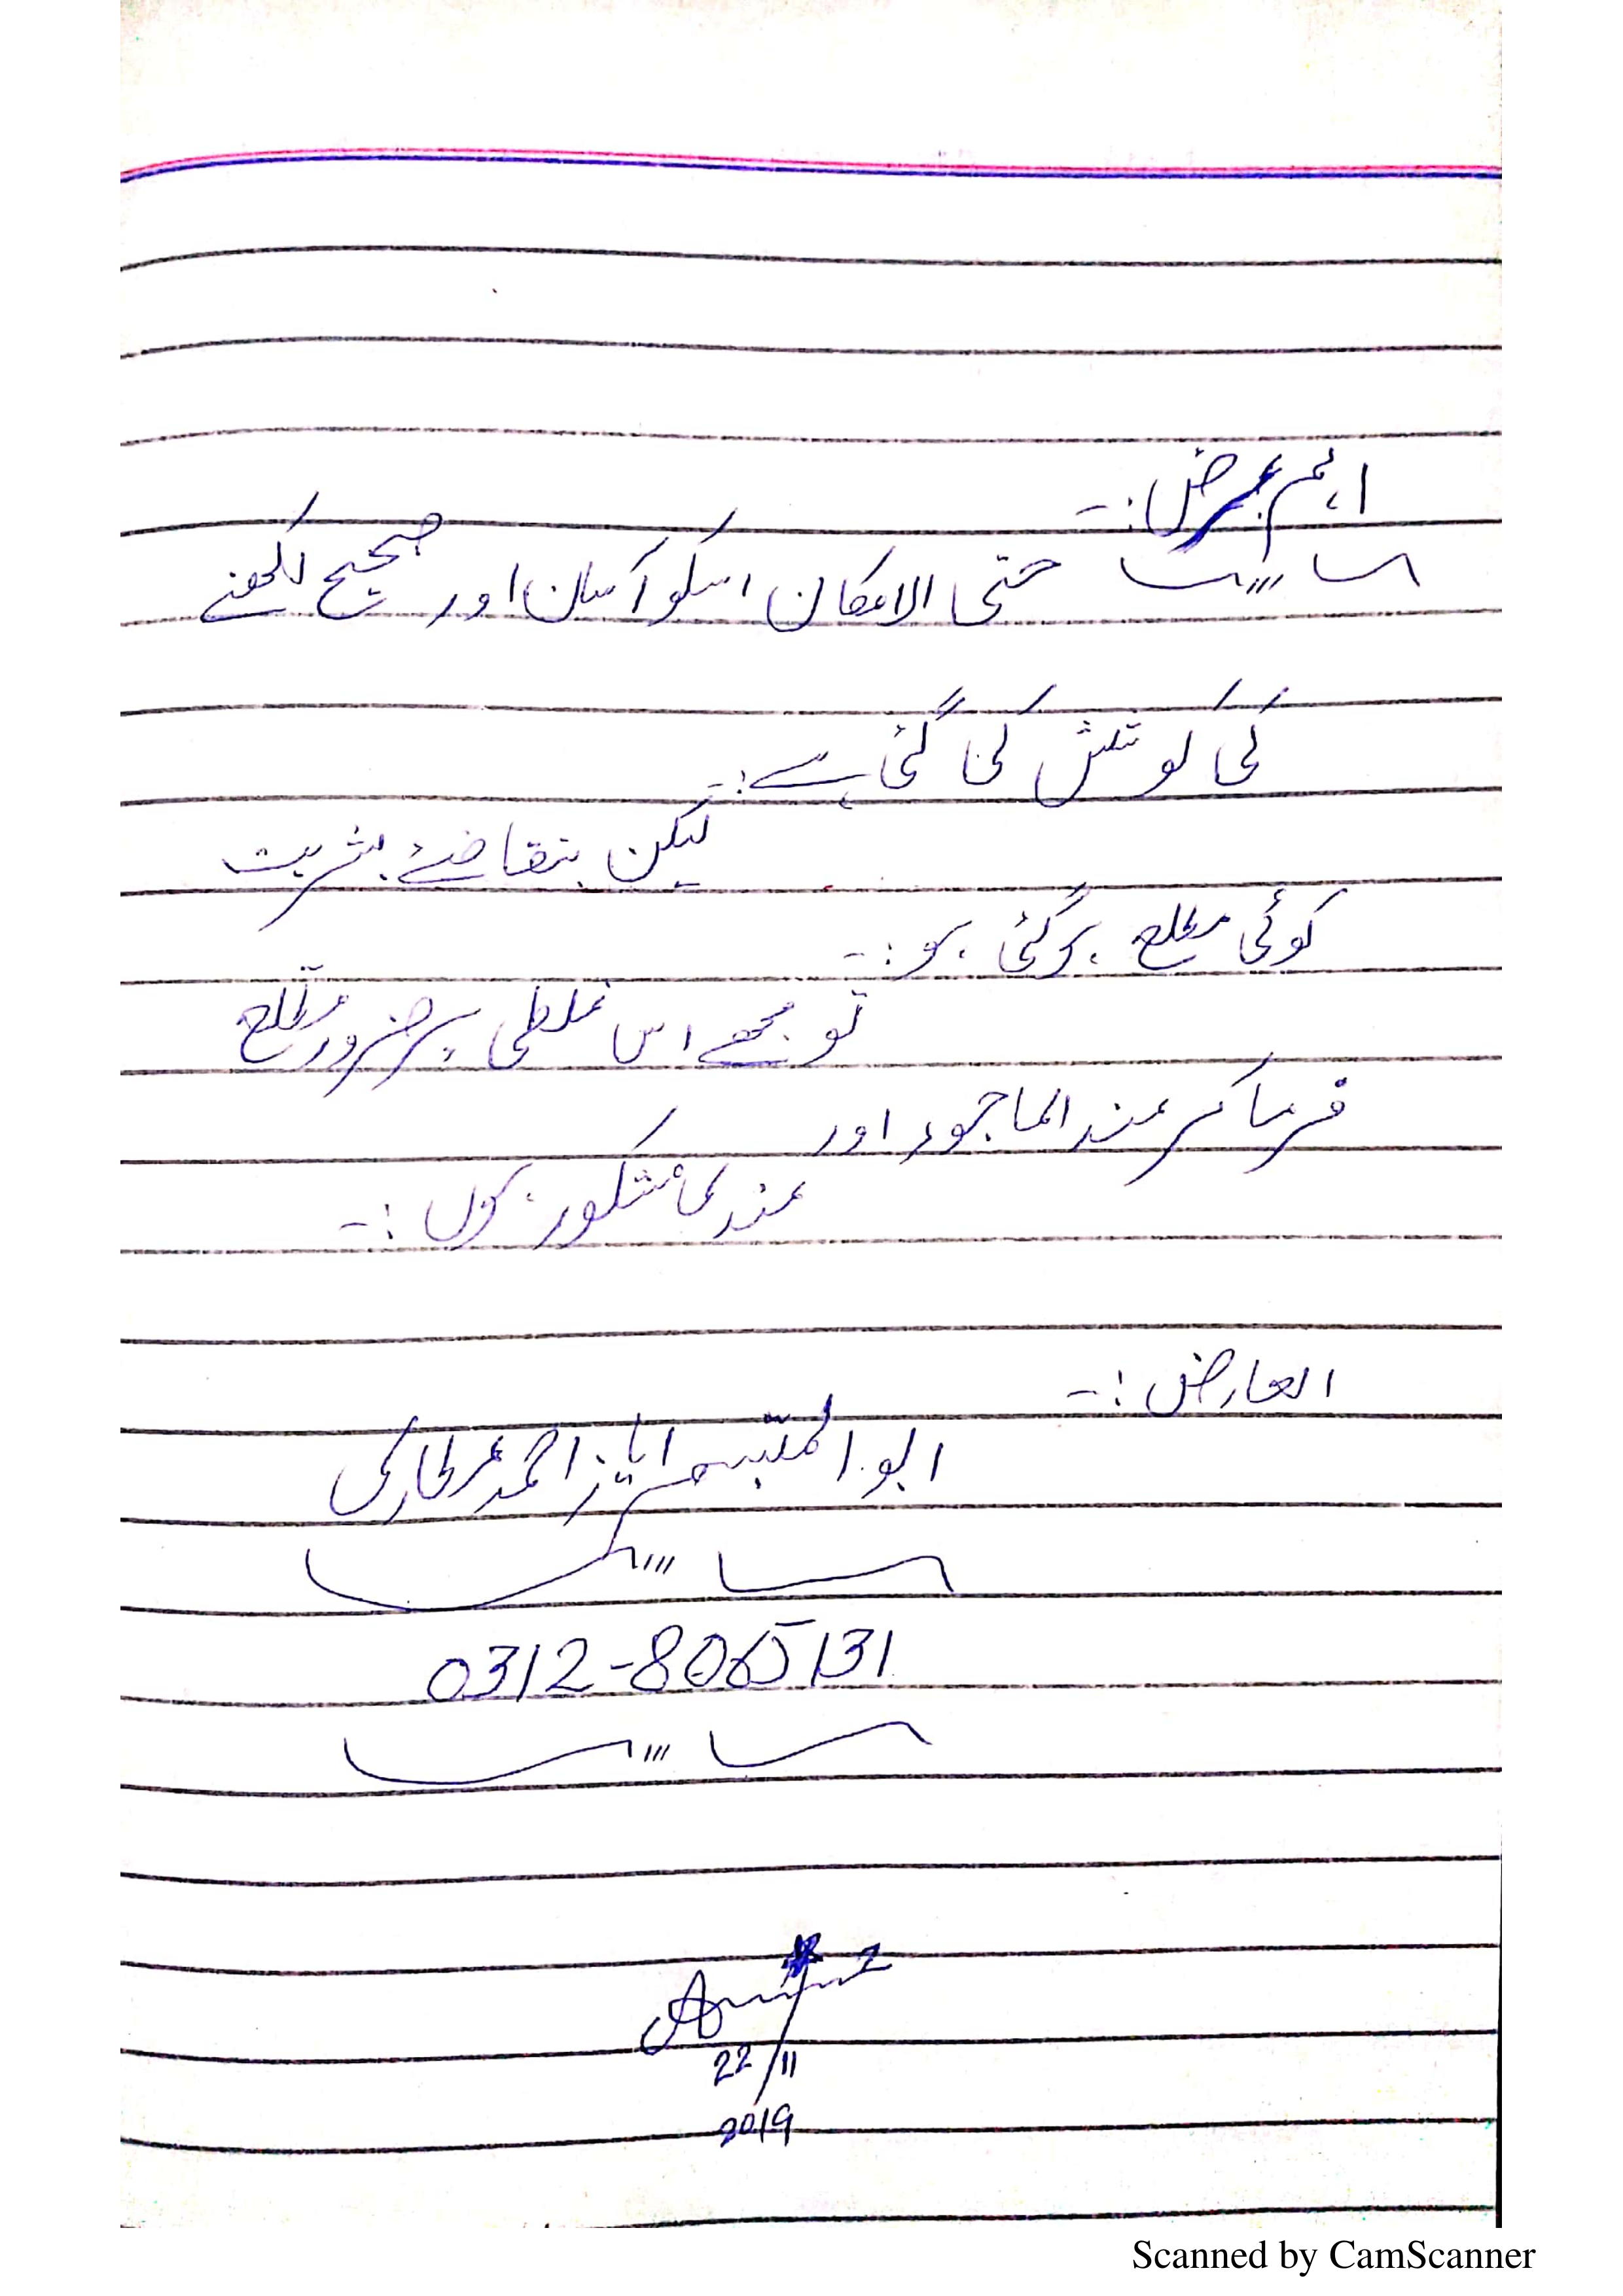 اہم عرض:-
حتی الامکان اسکو آسان اور صحیح لکھنے
کی کوشش کی گئی ہے:-
لیکن بتقاضۓ بشریت
کوئی مطلع ہوگئی ہو:-
تو مجھے اس غلطی پر ضرور مطلع
فرما کر عند الماجور اور
عند مشکور ہوں:-
العارض:-
ابو المتبسم ایاز احمد عطاری
0312-8065131
22/11
2019
Scanned by CamScanner